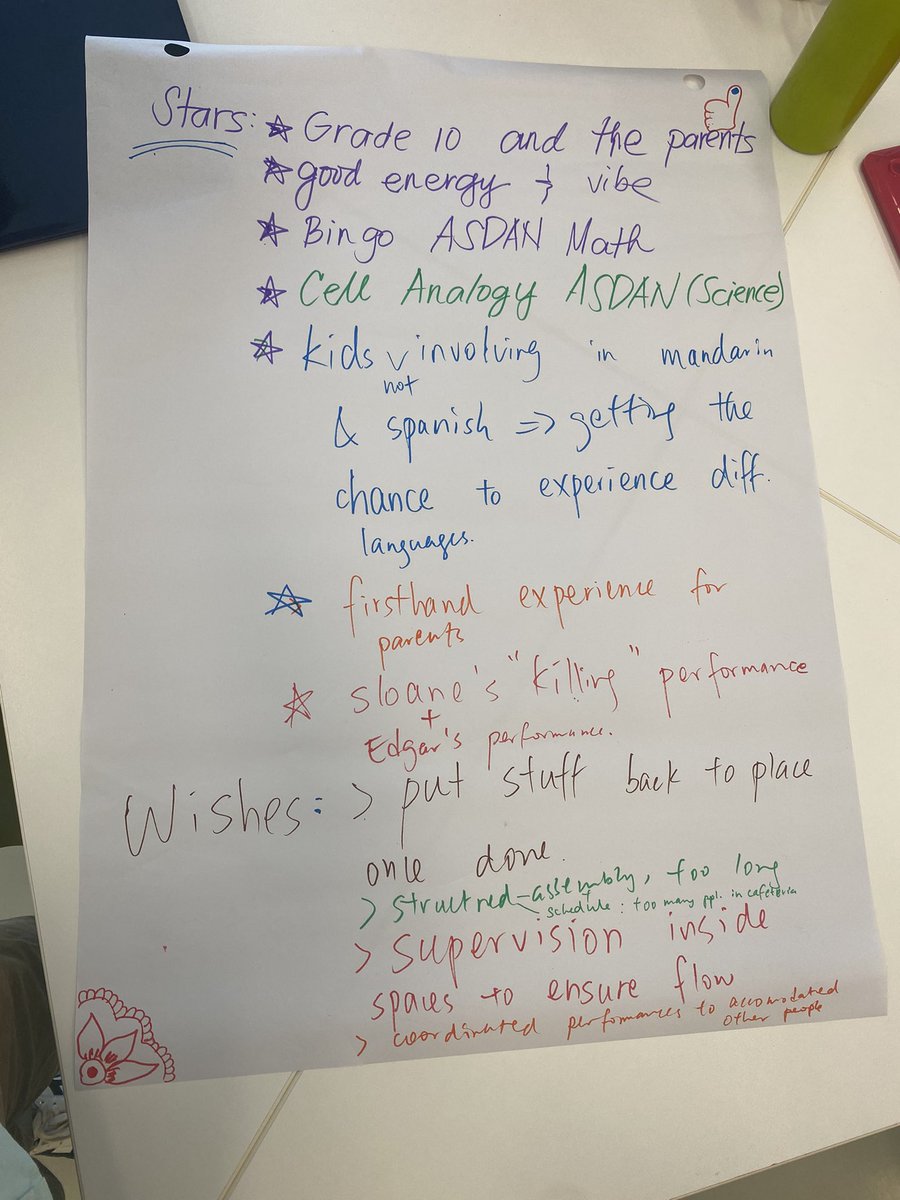 Stars: ☆ Grade 10 and the parents
☆ good energy & vibe
☆ Bingo ASDAN Math
☆ Cell Analogy ASDAN (Science)
☆ kids ∨ involving in mandarin
not
& spanish => getting the
chance to experience diff.
languages.
☆ firsthand experience for
parents
☆ sloane's "killing" performance
+
Edgar's performance.
Wishes: > put stuff back to place
once done.
> structred - assembly, too long
schedule : too many ppl. in cafeteria
> supervision inside
spaces to ensure flow
> coordinated performances to accomodated
other people